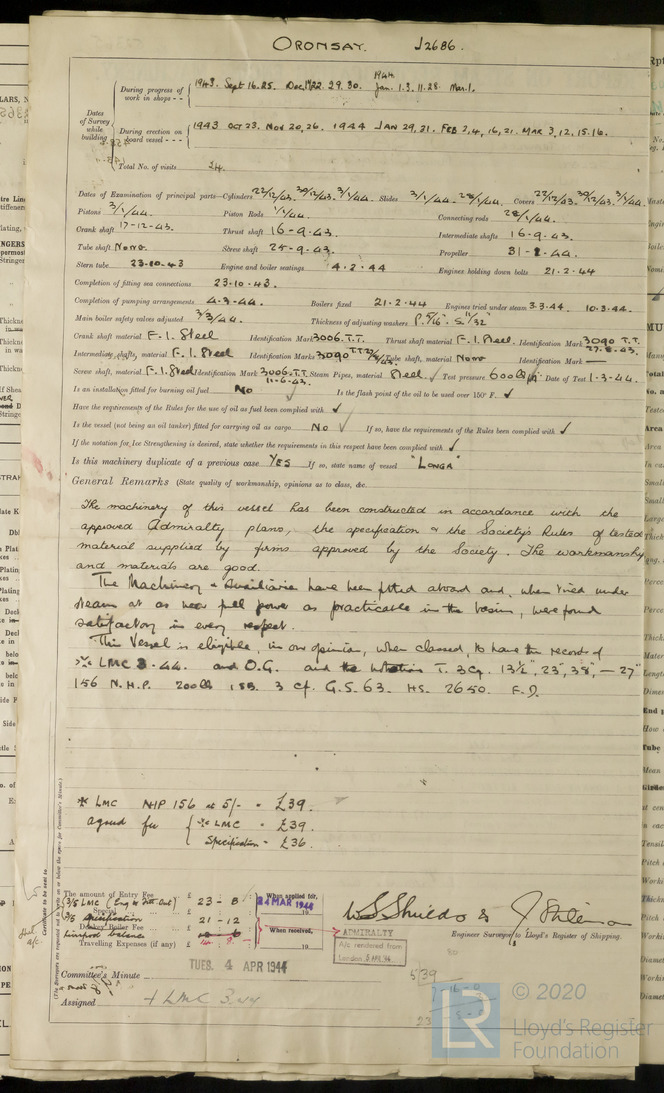 ORONSAY. J2686.
Dates of Survey while building
During progress of work in shops - - 1943. Sept 16.25. Dec. 22. 29. 30. 1944 Jan. 1.3.11.28. Mar. 1.
During erection on board vessel - - - 1943 OCT 23. NOV 20,26. 1944 JAN 29,31. FEB 2,4,16,21. MAR 3,12,15.16.
Total No. of visits 24.
Dates of Examination of principal parts—Cylinders 22/12/43. 30/12/43. 3/1/44. Slides 3/1/44. 28/1/44. Covers 22/12/43. 30/12/43. 3/1/44.
Pistons 3/1/44. Piston Rods 1/1/44. Connecting rods 28/1/44.
Crank shaft 17-12-43. Thrust shaft 16-9-43. Intermediate shafts 16-9-43.
Tube shaft None. Screw shaft 25-9-43. Propeller 31-1-44.
Stern tube 23-10-43 Engine and boiler seatings 4-2-44 Engines holding down bolts 21.2.44
Completion of fitting sea connections 23.10.43.
Completion of pumping arrangements 4-3-44. Boilers fixed 21.2.44 Engines tried under steam 3.3.44. 10.3.44.
Main boiler safety valves adjusted 3/3/44. Thickness of adjusting washers P. 5/16" S. 11/32"
Crank shaft material F.I. Steel Identification Mark 3006.T.T. Thrust shaft material F.I. Steel. Identification Mark 3090 T.T. 27.8.43.
Intermediate shafts, material F.I. Steel Identification Marks 3090 T.T. Tube shaft, material None Identification Mark —
Screw shaft, material F.I. Steel Identification Mark 3006.T.T. 11-6-43. Steam Pipes, material Steel. ✓ Test pressure 600 lb Date of Test 1-3-44.
Is an installation fitted for burning oil fuel No ✓ Is the flash point of the oil to be used over 150° F. ✓
Have the requirements of the Rules for the use of oil as fuel been complied with ✓
Is the vessel (not being an oil tanker) fitted for carrying oil as cargo No ✓ If so, have the requirements of the Rules been complied with ✓
If the notation for Ice Strengthening is desired, state whether the requirements in this respect have been complied with ✓
Is this machinery duplicate of a previous case YES If so, state name of vessel "LONGA"
General Remarks (State quality of workmanship, opinions as to class, &c.
The machinery of this vessel has been constructed in accordance with the
approved Admiralty plans, the specification & the Society's Rules of tested
material supplied by firms approved by the Society. The workmanship
and materials are good.
The Machinery & Auxiliaries have been fitted aboard and, when tried under
steam at as near full power as practicable in the basin, were found
satisfactory in every respect.
This Vessel is eligible, in our opinion, when classed, to have the record of
LMC 3.44. and O.G. and the notation T. 3Cy. 13½", 23", 38", — 27"
156 N.H.P. 200lb 1SB. 3 cf. G.S. 63. HS. 2650. F.D.
LMC NHP 156 at 5/- = £39.
agreed fee { LMC - £39.
Specification - £36.
The amount of Entry Fee £ : : When applied for,
3/5 LMC (Eng & Fitt. Out) 23 - 8 24 MAR 1944
3/5 specification 21 - 12
Donkey Boiler Fee When received,
Liverpool balance
Travelling Expenses (if any) £ : : 19
W.S. Shields &
Engineer Surveyor to Lloyd's Register of Shipping.
ADMIRALTY
A/c rendered from
London 5 APR 94
Committee's Minute TUES. 4 APR 1944
Assigned + LMC 3.44
(The Surveyors are requested not to write on or below the space for Committee's Minute.)
Certificate to be sent to
5/39
© 2020
Lloyd's Register
Foundation
LR